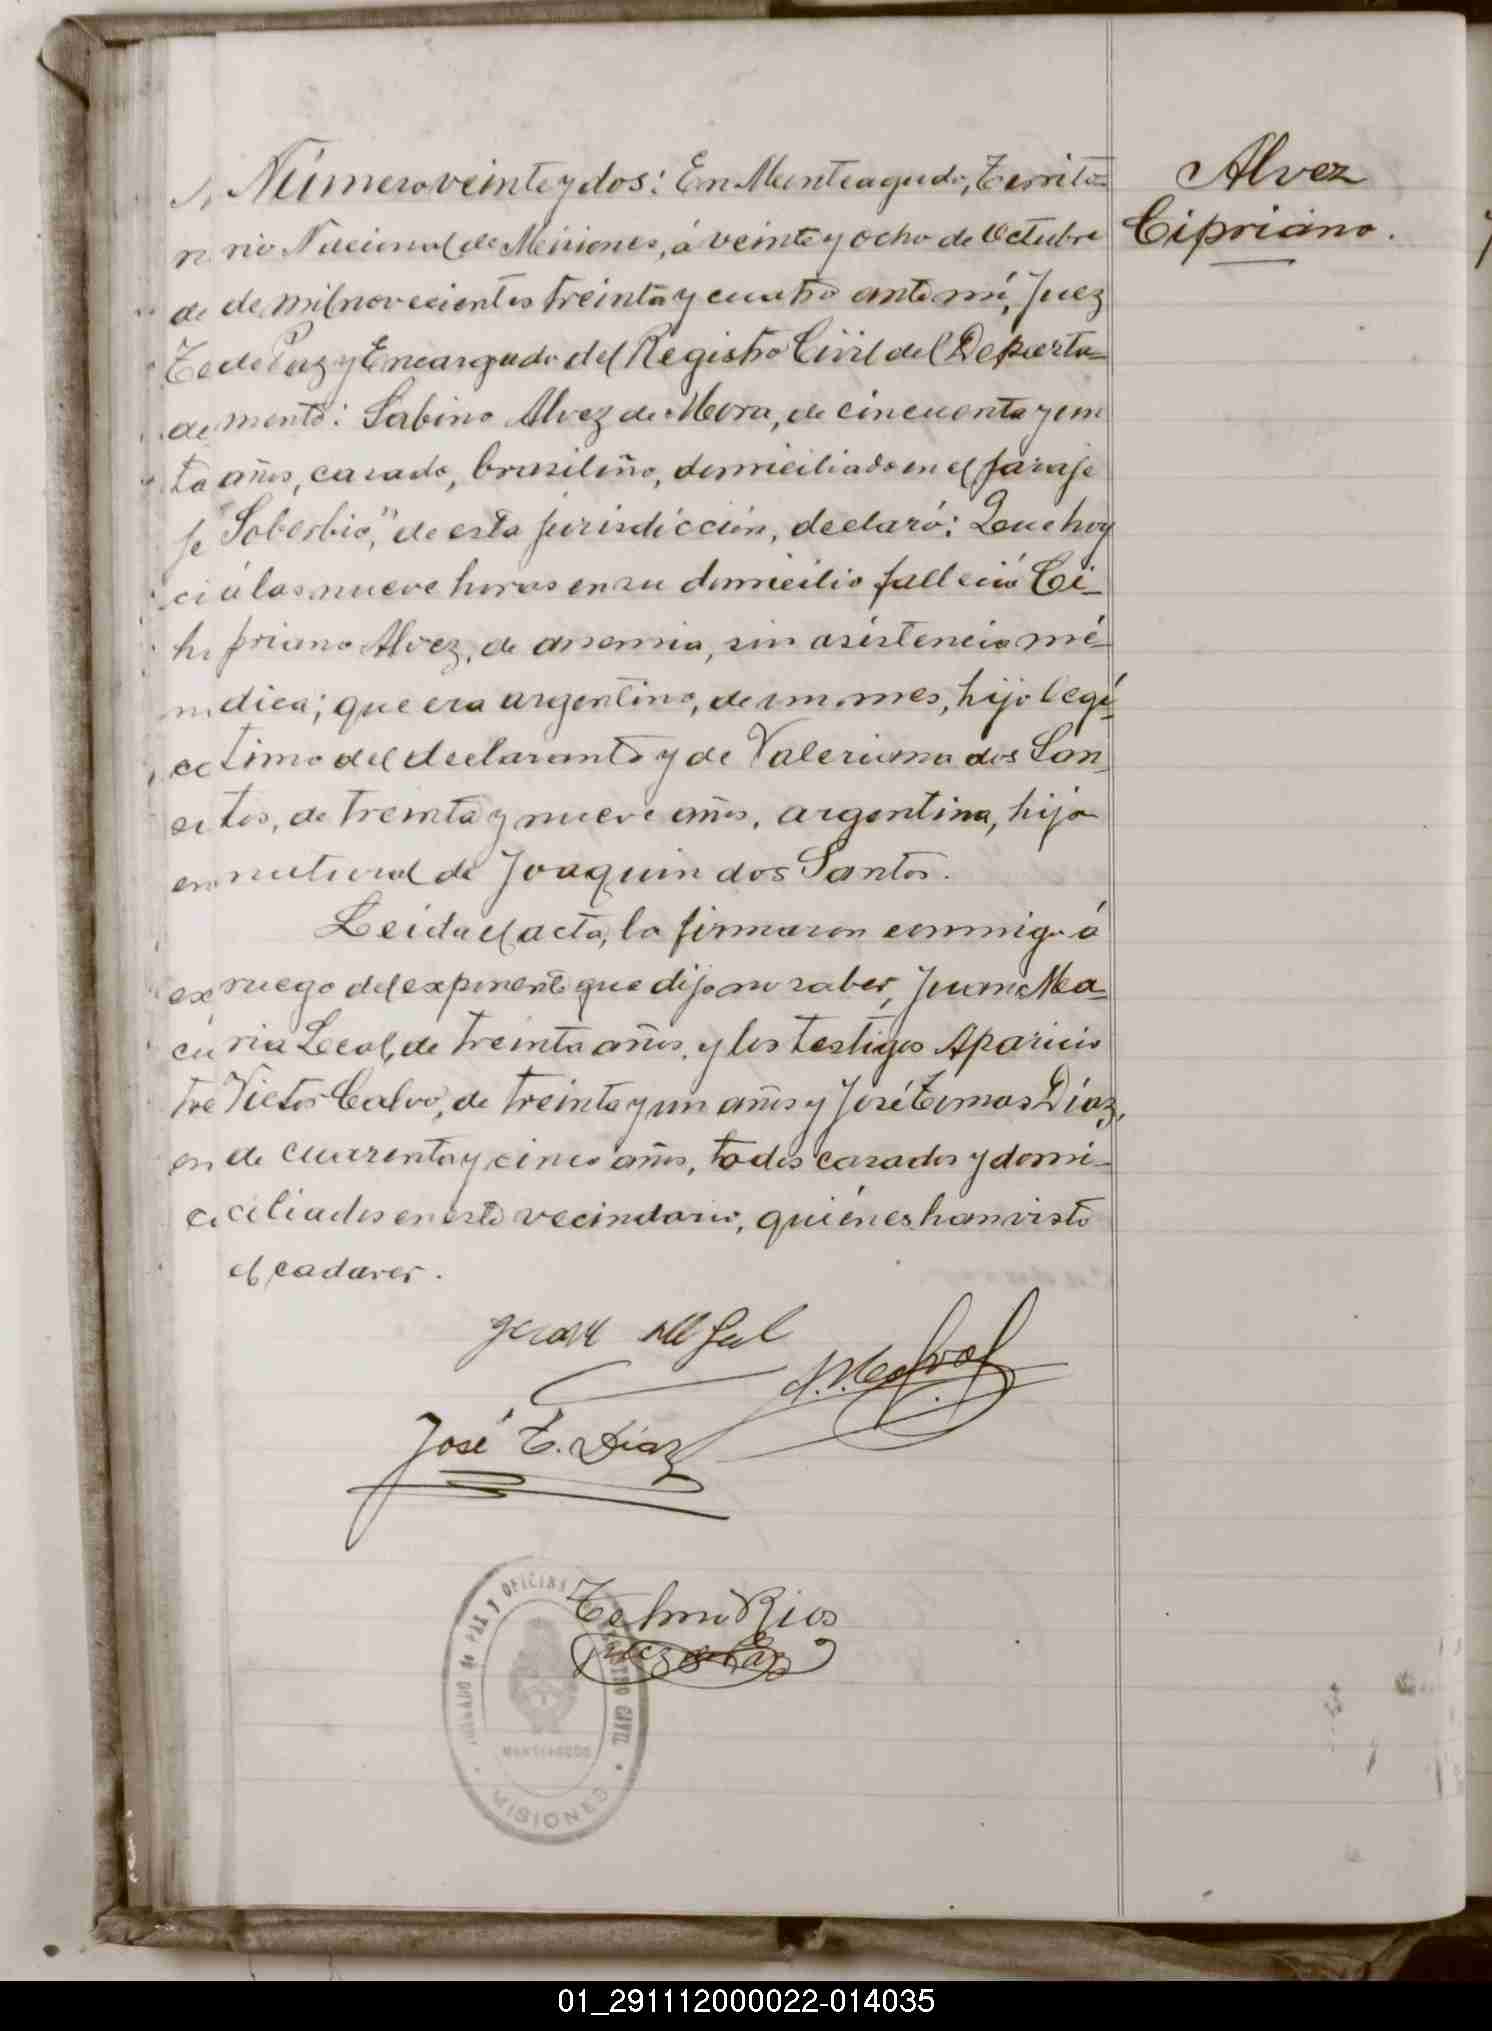 Número veinte y dos: En Monteagudo, Territo=
rio Nacional de Misiones, á veinte y ocho de Octubre
de mil novecientos treinta y cuatro ante mí, Juez
de Paz y Encargado del Registro Civil del Departa=
mento: Sabino Alvez de Mora, de cincuenta y un
años, casado, brasileño, domiciliado en el paraje
"Soberbio," de esta jurisdicción, declaró: Que hoy
á las nueve horas en su domicilio falleció Ci=
priano Alvez, de anemia, sin asistencia mé=
dica; que era argentino, de un mes, hijo legí=
timo del declarante y de Valeriana dos San=
tos, de treinta y nueve años, argentina, hija
natural de Joaquin dos Santos.
Leida el acta, la firmaron conmigo á
ruego del exponente que dijo no saber, Juan Ma=
ria Leal, de treinta años, y los testigos Aparicio
Victor Calvo, de treinta y un años y José Tomas Díaz,
de cuarenta y cinco años, todos casados y domi=
ciliados en este vecindario, quiénes han visto
el cadaver.
Alvez
Cipriano.
A. V. Calvo
José T. Díaz
Telmo Rios
Juez de Paz
JUZGADO de PAZ y OFICINA REGISTRO CIVIL
MONTEAGUDO
MISIONES
01_291112000022-014035